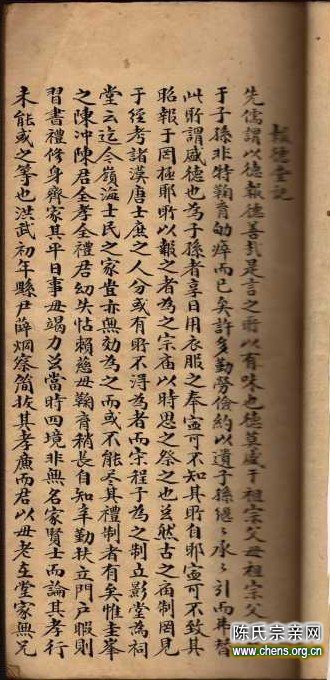 報德堂記
先儒謂以德報德善哉是言之所以有味也德莫盛于祖宗父母祖宗父
于子孫非特鞠育劬瘁而已矣許多勤勞儉約以遺子孫繼〻承〻引而弗替
此所謂盛德也為子孫者享日用衣服之奉寧可不知其所自耶寧可不致其
昭報于罔極耶所以報之者為之宗庙以時思之祭之也茲然古之庙制罔見
于經考諸漢唐士庶之人分或有所不得為者而宋程子為之制立影堂為祠
堂云迄今嶺海士民之家豈亦無効為之而或不能尽其禮制者有矣惟圭峯
之陳冲陳君全孝全禮君幼失怙賴慈母鞠育稍長自知辛勤扶立門户暇則
習書禮修身齊家其平日事毋竭力茲當時四境非無名家賢士而論其孝行
未能或之等也洪武初年縣尹薛烟察簡拔其孝廉而君以母老在堂家無兄
陈氏宗亲网
www.chens.org.cn